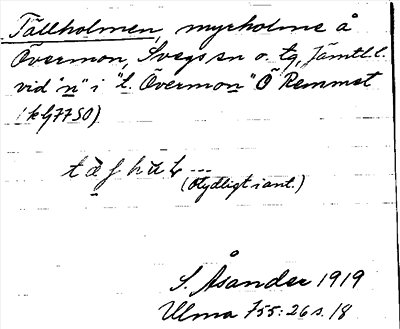 Tällholmen, myrholme å
Övermon, Svegs sn o. tg, Jämtl. l.
vid "n" i "l. Övermon" Ö Remmet
(kg 7750)
(Otydligt i ant.)
S. Åsander 1919
Ulma 755: 26 s. 18